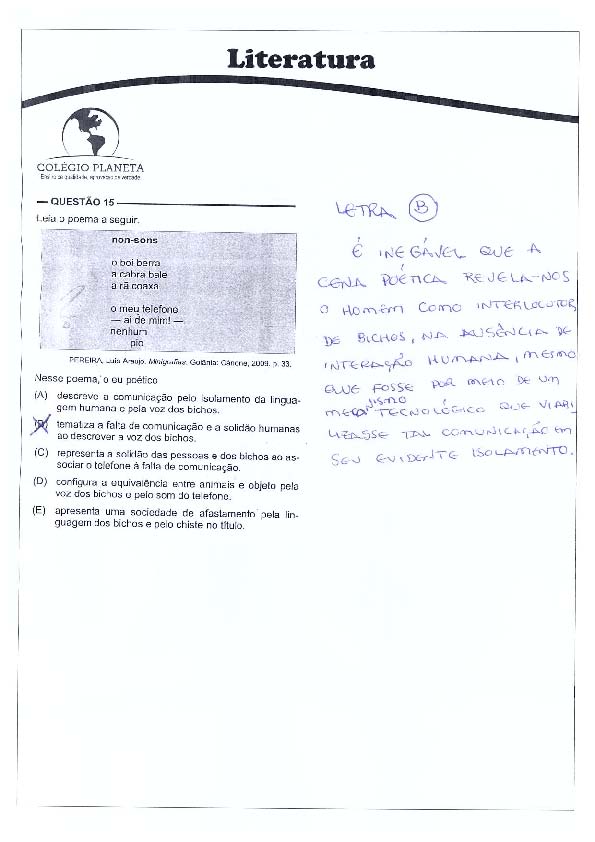 Literatura
COLÉGIO PLANETA
Ensino de qualidade, aprovação de verdade.
QUESTÃO 15
Leia o poema a seguir.
non-sons
o boi berra
a cabra bale
a rã coaxa
o meu telefone
— ai de mim! —
nenhum
pio
PEREIRA, Luís Araujo. Minigrafias. Goiânia: Cânone, 2009. p. 33.
Nesse poema, o eu poético
(A) descreve a comunicação pelo isolamento da lingua-
gem humana e pela voz dos bichos.
(B) tematiza a falta de comunicação e a solidão humanas
ao descrever a voz dos bichos.
(C) representa a solidão das pessoas e dos bichos ao as-
sociar o telefone à falta de comunicação.
(D) configura a equivalência entre animais e objeto pela
voz dos bichos e pelo som do telefone.
(E) apresenta uma sociedade de afastamento pela lin-
guagem dos bichos e pelo chiste no título.
LETRA B
É INEGÁVEL QUE A
CENA POÉTICA REVELA-NOS
O HOMEM COMO INTERLOCUTOR
DE BICHOS, NA AUSÊNCIA DE
INTERAÇÃO HUMANA, MESMO
QUE FOSSE POR MEIO DE UM
MECANISMO TECNOLÓGICO QUE VIABI-
LIZASSE TAL COMUNICAÇÃO EM
SEU EVIDENTE ISOLAMENTO.